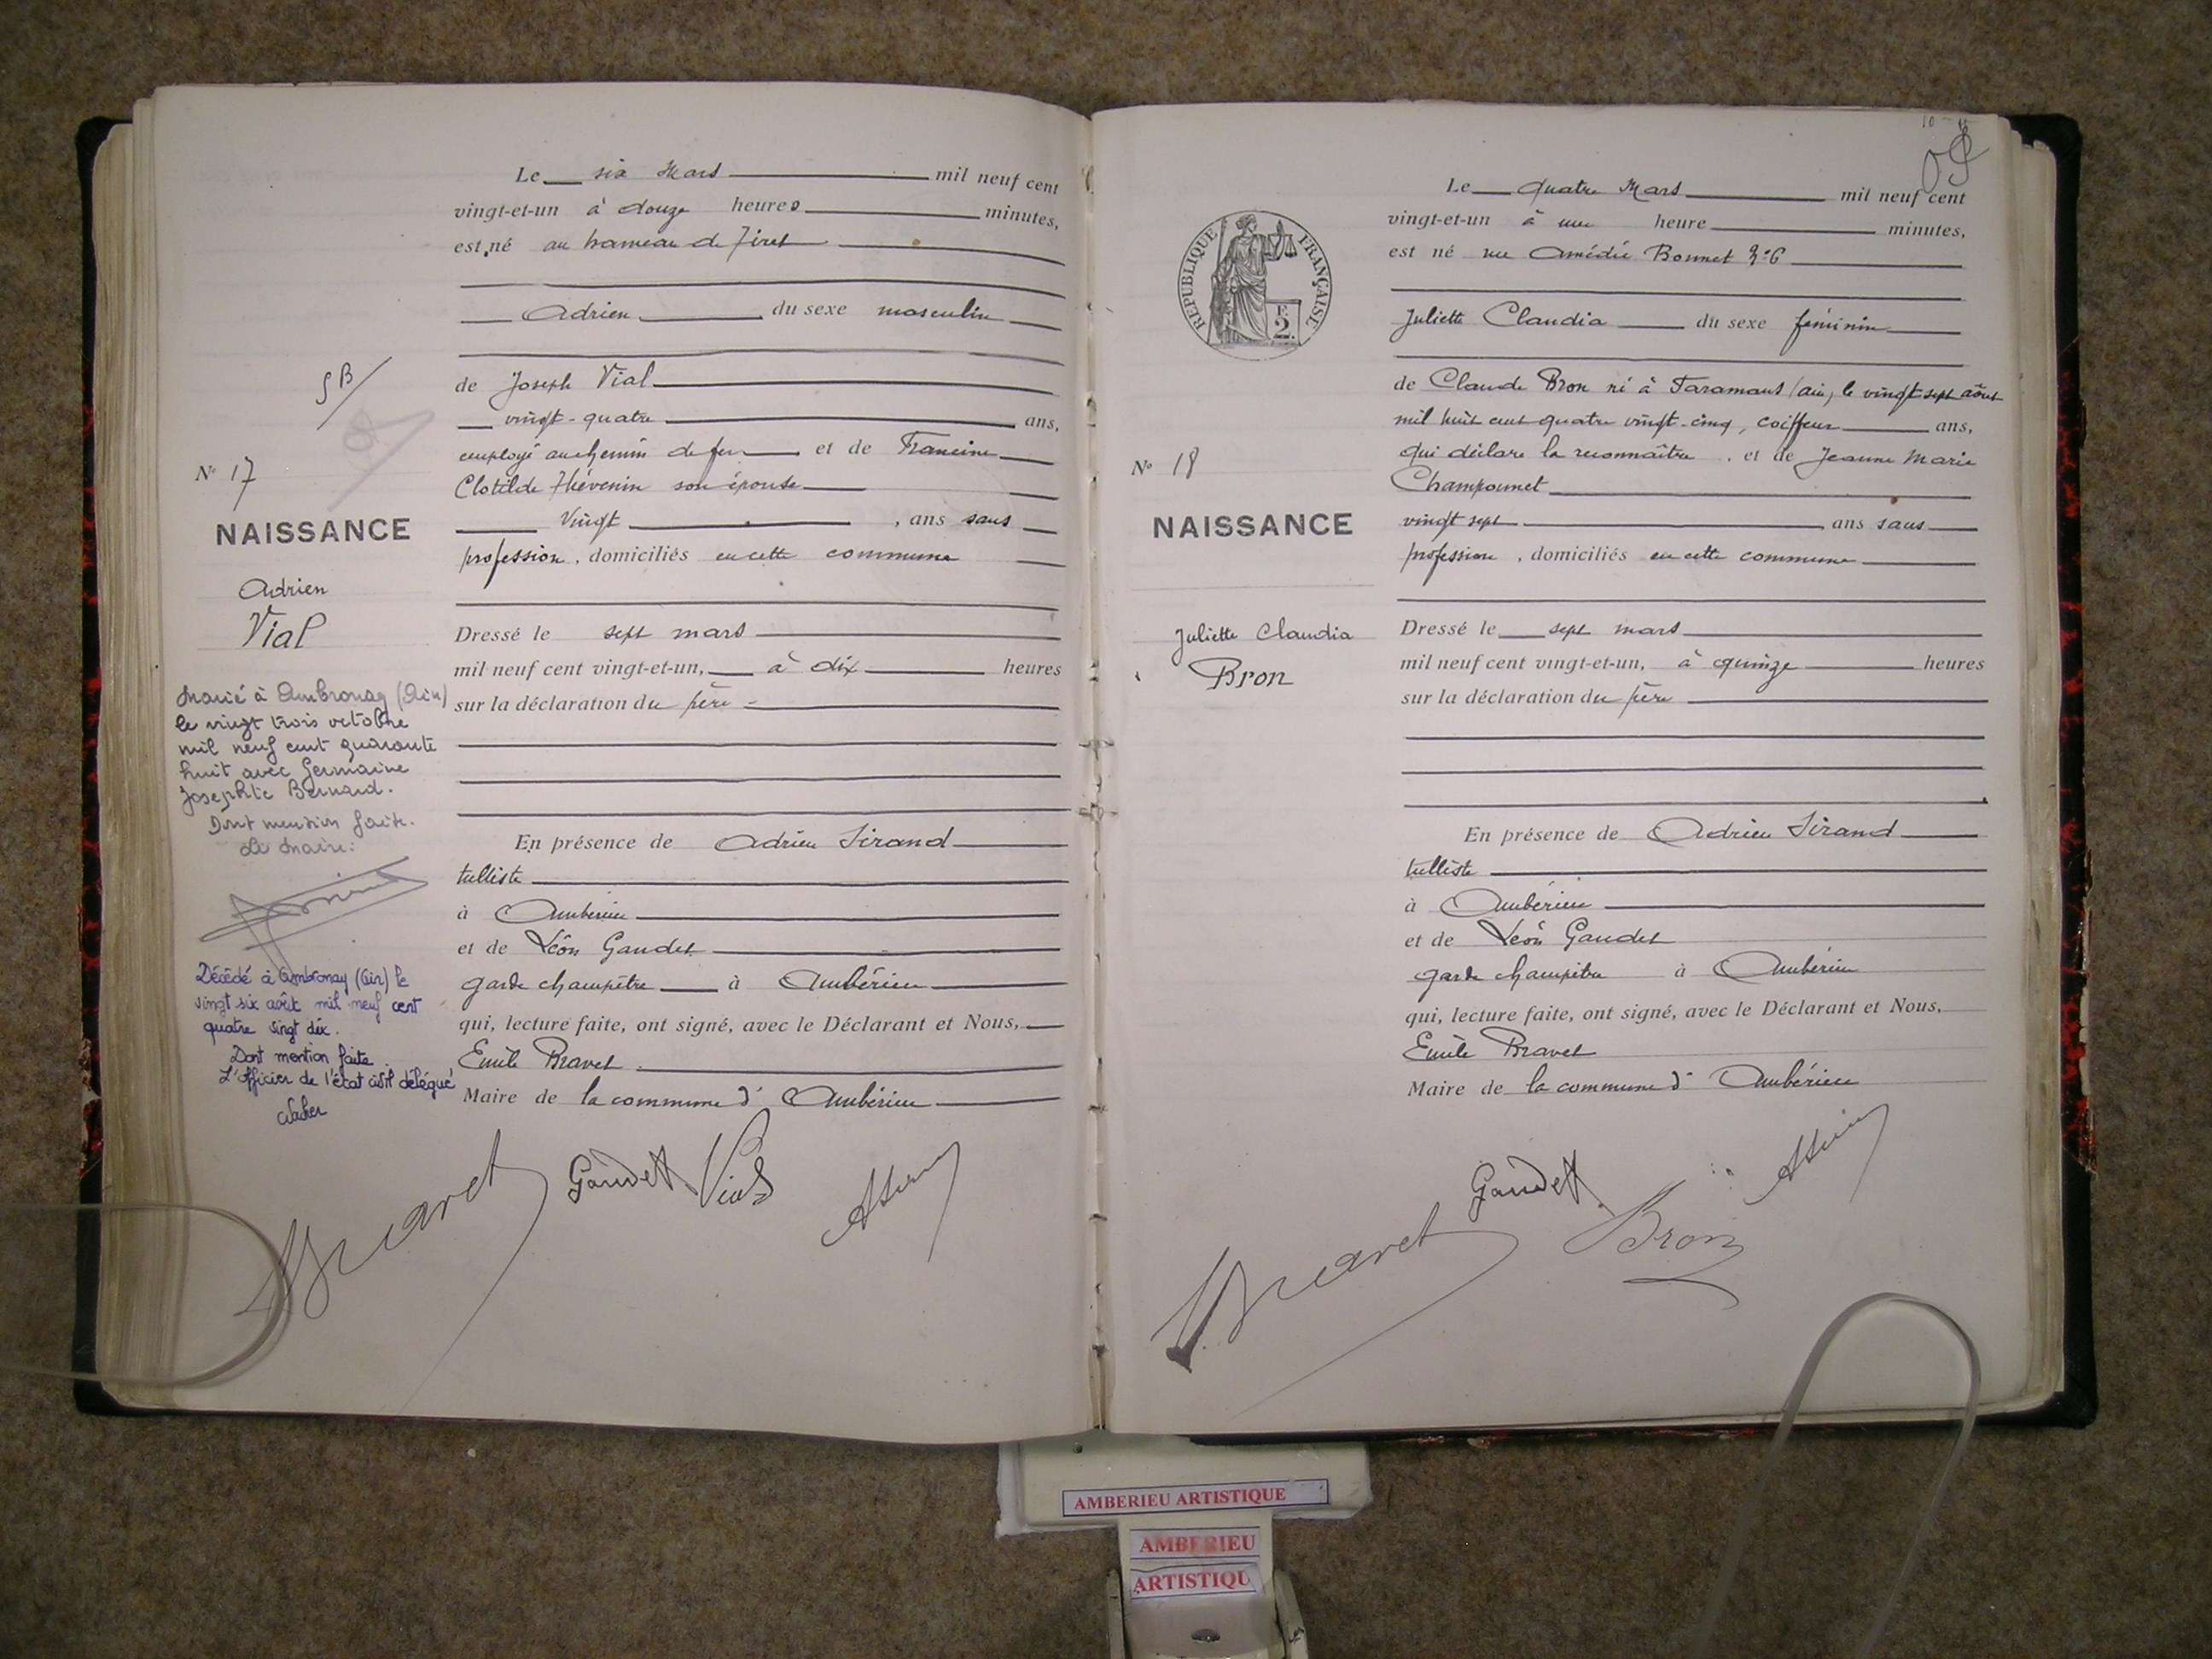 Le six Mars mil neuf cent
vingt-et-un à douze heures minutes,
est né au hameau de Tiret
Adrien du sexe masculin
de Joseph Vial
vingt-quatre ans,
employé au chemin de fer et de Francine
Clotilde Thévenin son épouse
Vingt , ans sans
profession, domiciliés en cette commune
Dressé le sept mars
mil neuf cent vingt-et-un, à dix heures
sur la déclaration du père
En présence de Adrien Sirand
tulliste
à Ambérieu
et de Léon Gaudet
garde champêtre à Ambérieu
qui, lecture faite, ont signé, avec le Déclarant et Nous,
Emile Bravet
Maire de la commune d' Ambérieu
Bravet Gaudet Vial
N° 17
NAISSANCE
Adrien
Vial
Marié à Ambronay (Ain)
le vingt trois octobre
mil neuf cent quarante
huit avec Germaine
Josephte Bernard.
Dont mention faite.
Le Maire:
Décédé à Ambronay (Ain) le
vingt six août mil neuf cent
quatre vingt dix.
Dont mention faite
L'officier de l'état civil délégué
REPUBLIQUE FRANÇAISE
2
N° 18
NAISSANCE
Juliette Claudia
Bron
Le quatre Mars mil neuf cent
vingt-et-un à une heure minutes,
est né rue Amédée Bonnet N°6
Juliette Claudia du sexe féminin
de Claude Bron né à Faramans (Ain) le vingt sept août
mil huit cent quatre vingt-cinq, coiffeur ans,
qui déclare la reconnaître , et de Jeanne Marie
Champonnet
vingt sept ans sans
profession , domiciliés en cette commune
Dressé le sept mars
mil neuf cent vingt-et-un, à quinze heures
sur la déclaration du père
En présence de Adrien Sirand
tulliste
à Ambérieu
et de Léon Gaudet
garde champêtre à Ambérieu
qui, lecture faite, ont signé, avec le Déclarant et Nous,
Emile Bravet
Maire de la commune d' Ambérieu
Bravet Gaudet Bron
AMBERIEU ARTISTIQUE
AMBERIEU
ARTISTIQU